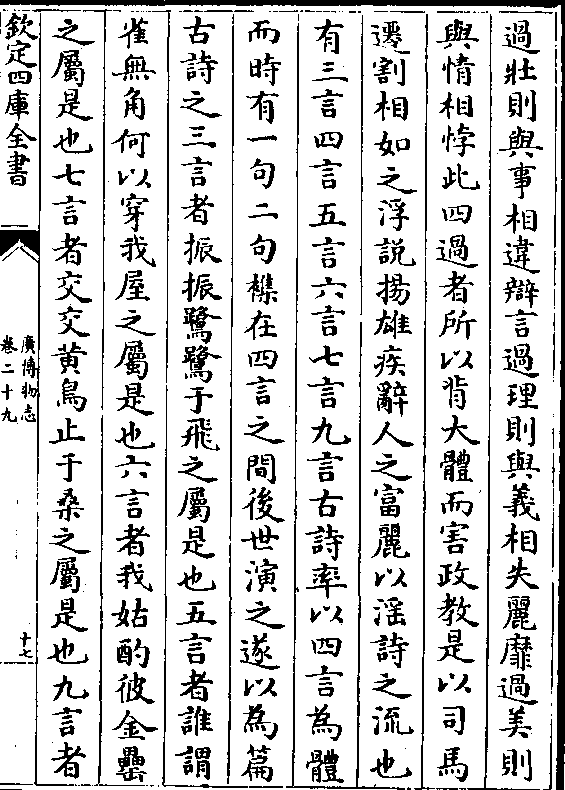 過壯則與事相違辯言過理則與義相失麗靡過美則
與情相悖此四過者所以背大體而害政教是以司馬
遷割相如之浮說揚雄疾辭人之富麗以淫詩之流也
有三言四言五言六言七言九言古詩率以四言為體
而時有一句二句櫟在四言之間後世演之遂以為篇
古詩之三言者振振鷺鷺于飛之屬是也五言者誰謂
雀無角何以穿我屋之屬是也六言者我姑酌彼金罍
之屬是也七言者交交黄鳥止于桑之屬是也九言者
欽定四庫全書
廣博物志
卷二十九
十七